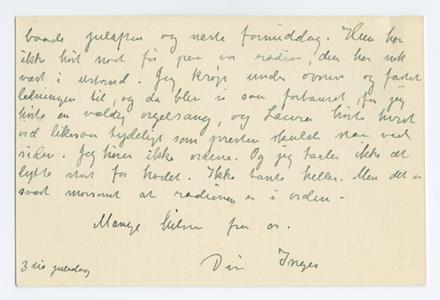 baade juleaften og neste formiddag. Hun har
ikke hørt noget før paa vor radio, den har nok
vært i ustand. Jeg krøp under ovnen og fæstet
ledningen til, og da blev vi saa forbauset, for jeg
hørte en vældig orgelsang, og Laura hørte hvert
ord likesaa tydeligt som presten skulde staa ved
siden. Jeg hører ikke ordene. Og jeg taaler ikke at
lytte stort for hodet. Ikke tante heller. Men det er
svært morsomt at radioen er i orden -
Mange hilsner fra os.
Din Inger
3die juledag